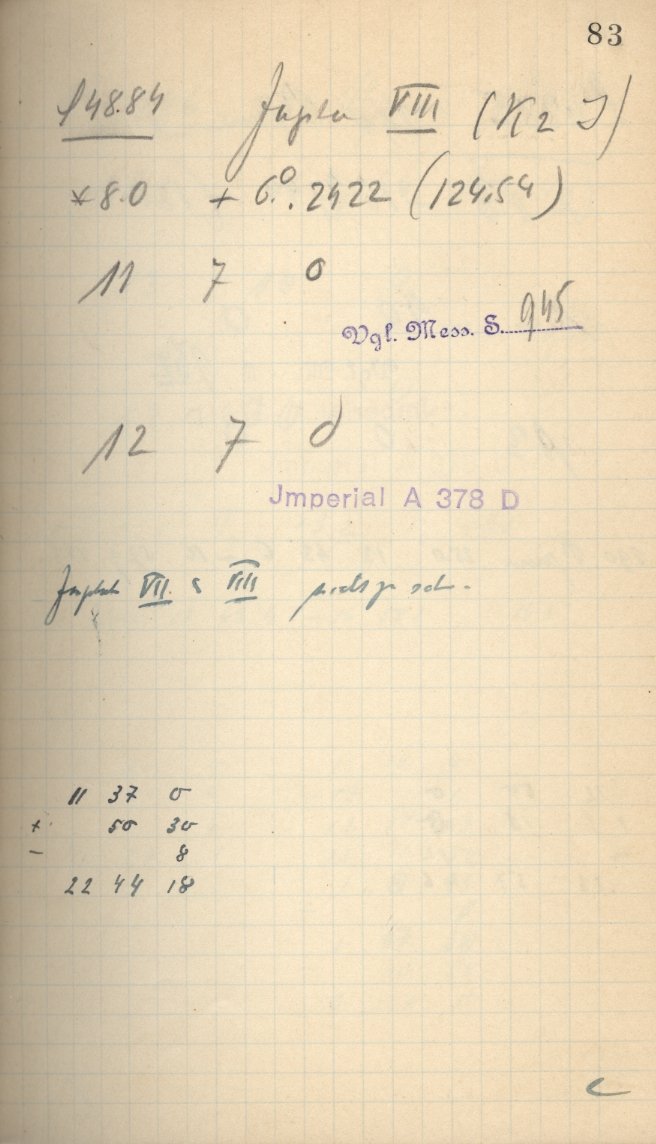 83
148.84 Jupiter VIII (K2 J)
* 8.0 + 6°.2422 (124.54)
11 7 0
Vgl. Mess. S. 945
12 7 0
Jmperial A 378 D
Jupiter VII VIII
11 37 0
+ 50 30
- 8
22 44 18